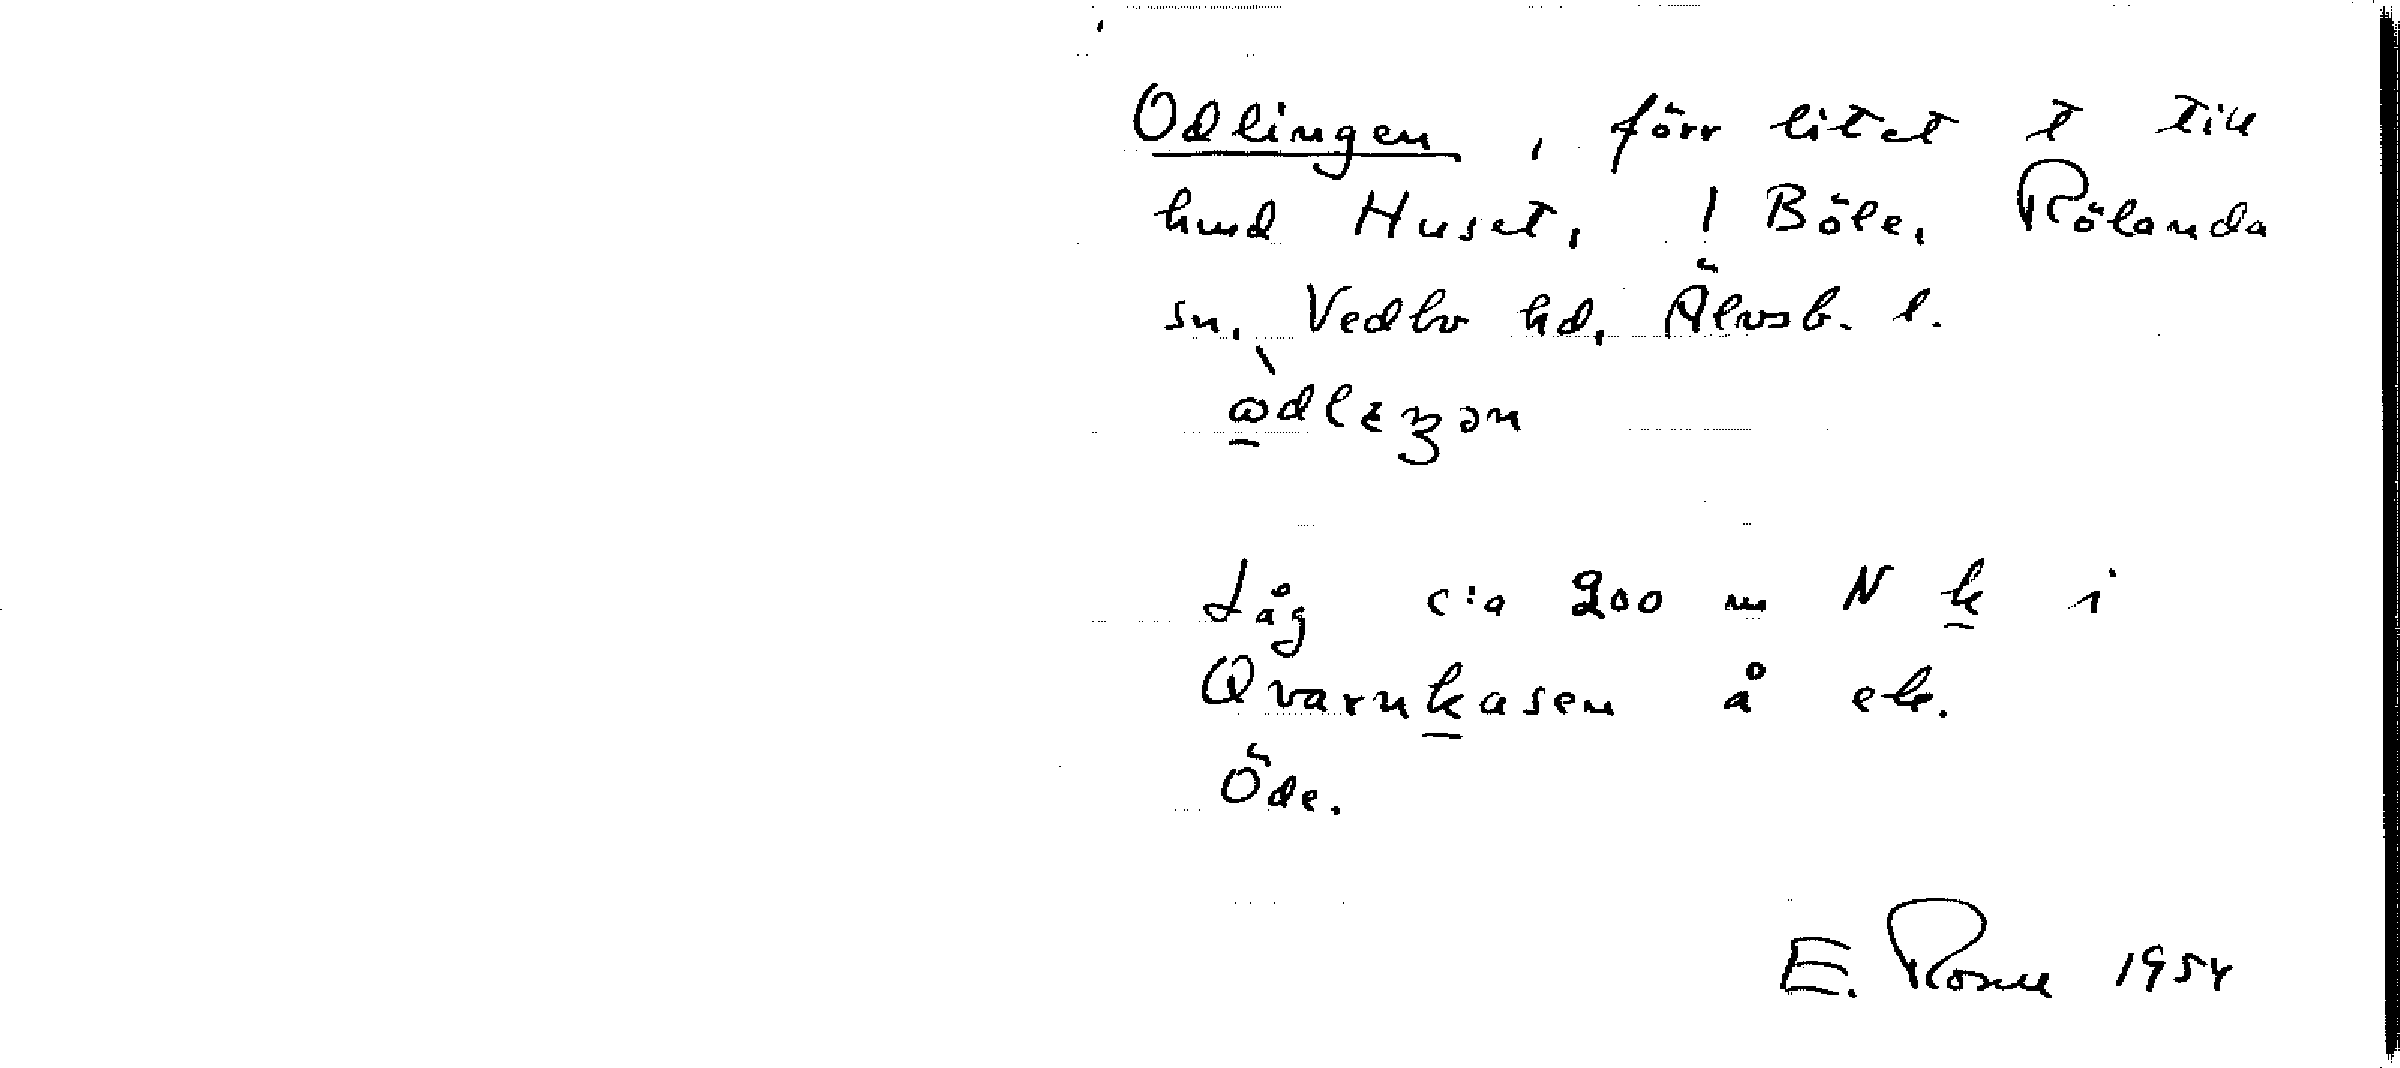 Odlingen, förr litet t till
hmd Huset, 1 Böle, Rölanda
sn, Vedbo hd, Älvsb. l.
Låg c:a 200 m N k i
Qvarnkasen å ek.
Öde.
E. 1954